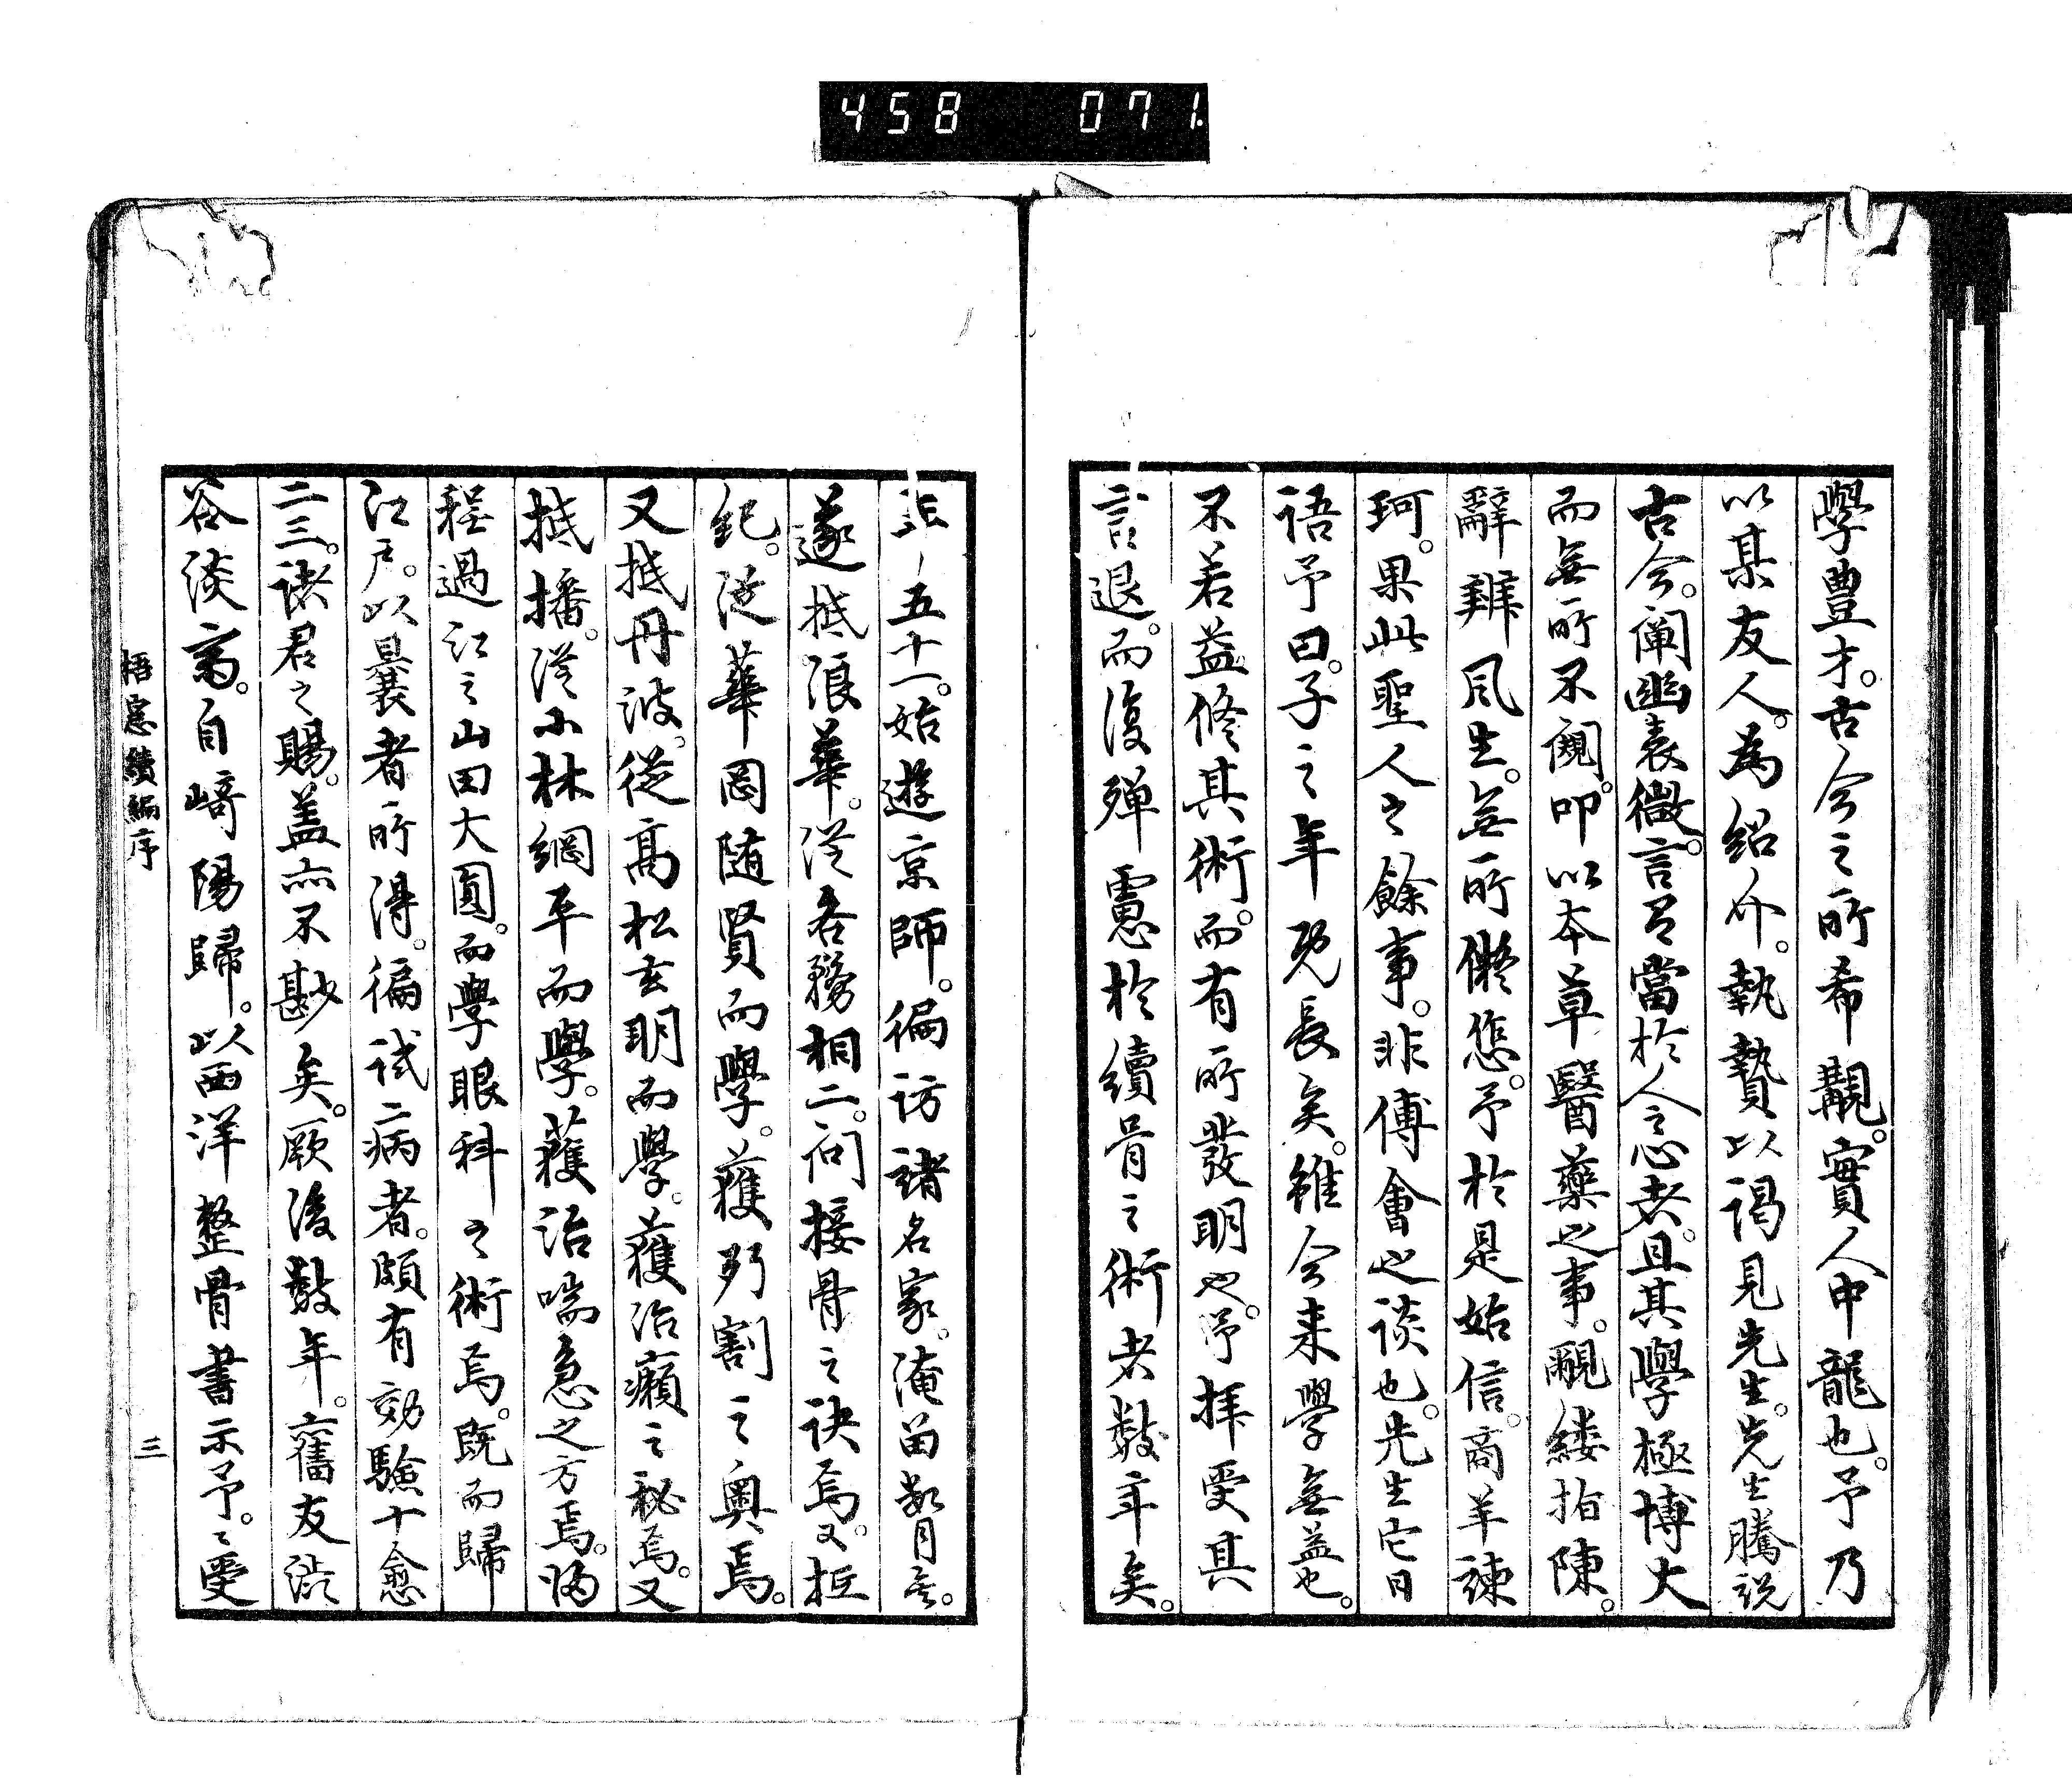 458 071
學豊才。古今之所希覯。實人中龍也。予乃
以某友人。為紹介。執贄以謁見先生。先生騰説
古今。闡幽表微。言有當於人之心者。且其學極博大
而無所不闚。叩以本草醫藥之事。覼縷指陳。
辭辨風生。無所僽。予於是始信。商羊諫
珂。果此聖人之餘事。非傅會之談也。先生它日
語予曰。子之年既長矣。雖今来學無益也。
不若益修其術。而有所發明也。予拝受其
言退。而復殫慮於續骨之術者數年矣。
年五十一。始遊京師。徧訪諸名家。淹留數月。
遂抵浪華。從各務相二。問接骨之訣焉。又抵
紀。從華岡随賢而學。獲剖割之奥焉。
又抵丹波。從高松玄明而學。獲治癩之秘焉。又
抵播。從小林綱平而學。獲治喘急之方焉。歸
程過江之山田大圓。而學眼科之術焉。既而歸
江戸。以曩者所得。徧試二病者。頗有効驗十愈
二三。諸君之賜。蓋亦不尠矣。厥後數年。舊友渋
谷淡斎。自﨑陽歸。以西洋整骨書示予。〻受
梧窓續編序 三